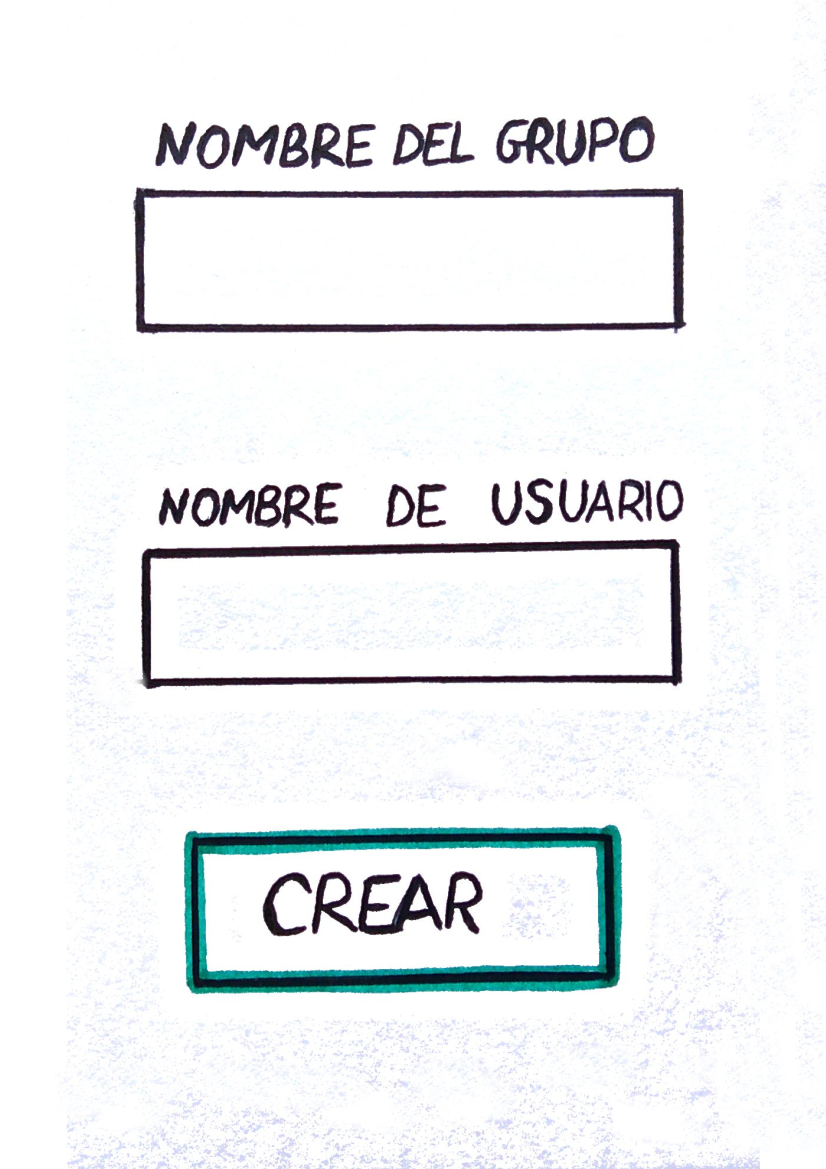 NOMBRE DEL GRUPO
NOMBRE DE USUARIO
CREAR